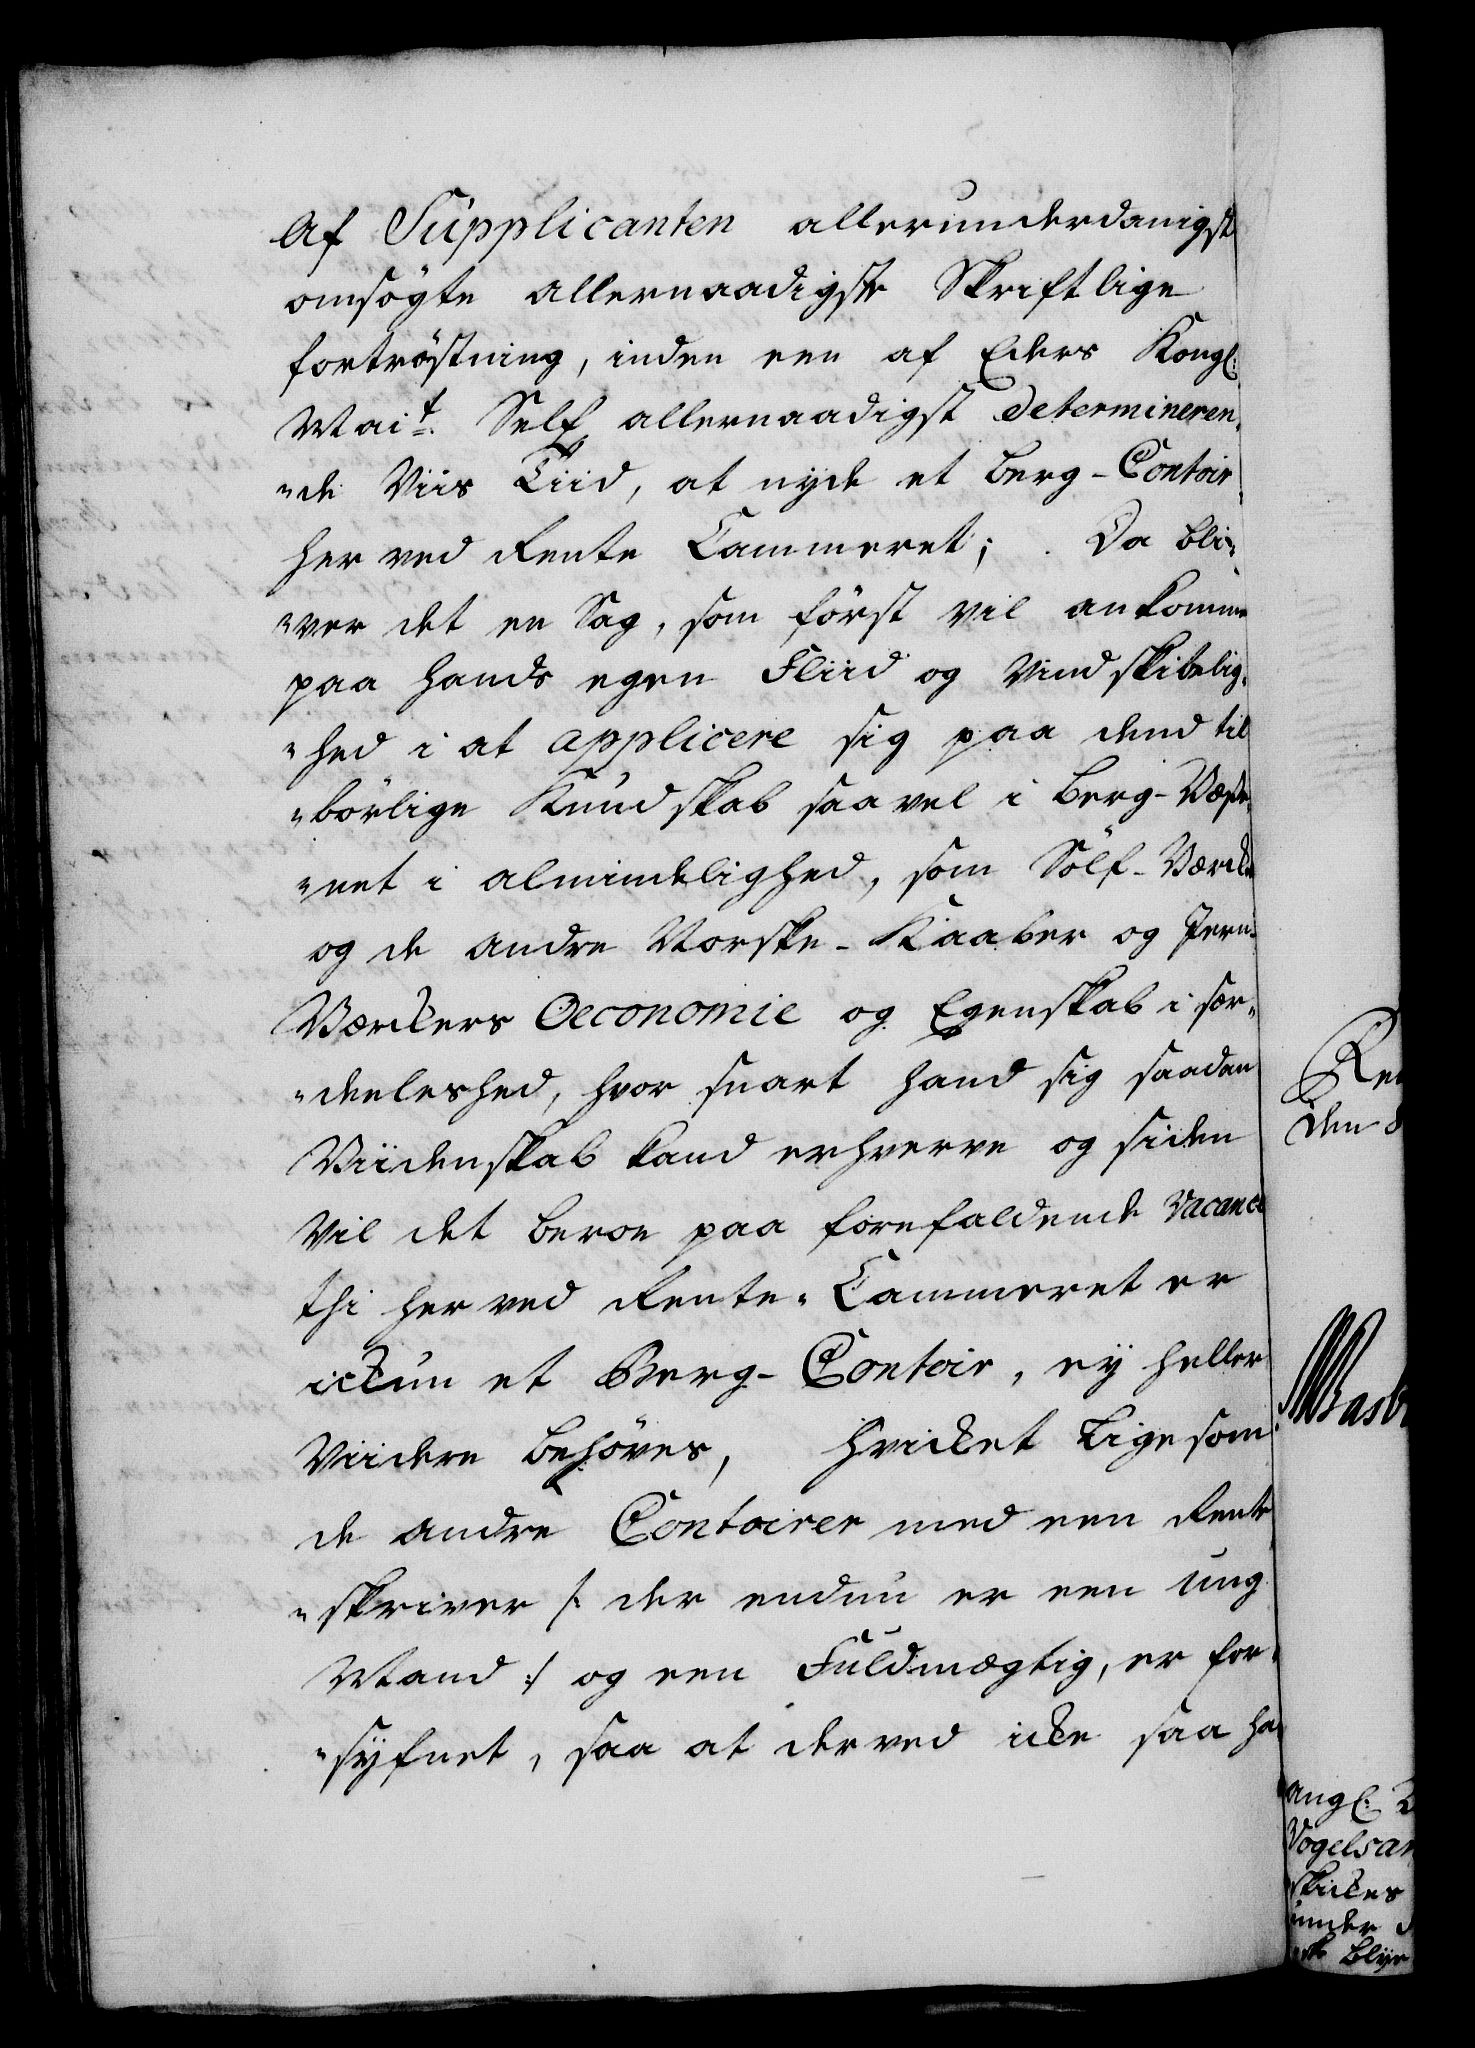 Af Supplicanten allerunderdanigst
omsögte allernaadigste Skriftlige
fortröstning, inden een af Eders Kongl:
Mai.t Self allernaadigst determineren„
„de Viis Tiid, at nyde et Berg-Contoir
her ved Rente Cammeret; Da bli„
„ver det en Sag, som först vil ankomme
paa hands egen Fliid og Vindskibelig„
„hed i at applicere sig paa dend til
„börlige Kundskab saavel i Berg-Væse„
„net i almindelighed, som Sölf-Værcke
og de andre Norske-Kaaber og Jern-
Værckers Oeconomie og Egenskab i sær„
„deeleshed, hvor snart hand sig saadan
Viidenskab kand erhverve og siden
Vil det beroe paa forefaldende Vacance
thi her ved Rente-Cammeret er
ickun et Berg-Contoir, ey heller
Viidere behöves, hvicket Lige som
de andre Contoirer med een Rente
„skriver /: der endnu er een ung
Mand :/ og een Fuldmægtig, er for„
„syfnet, saa at derved icke saa ha„
Ren
den 8
angl:
Vogelsan
skickes
under d
Blyr